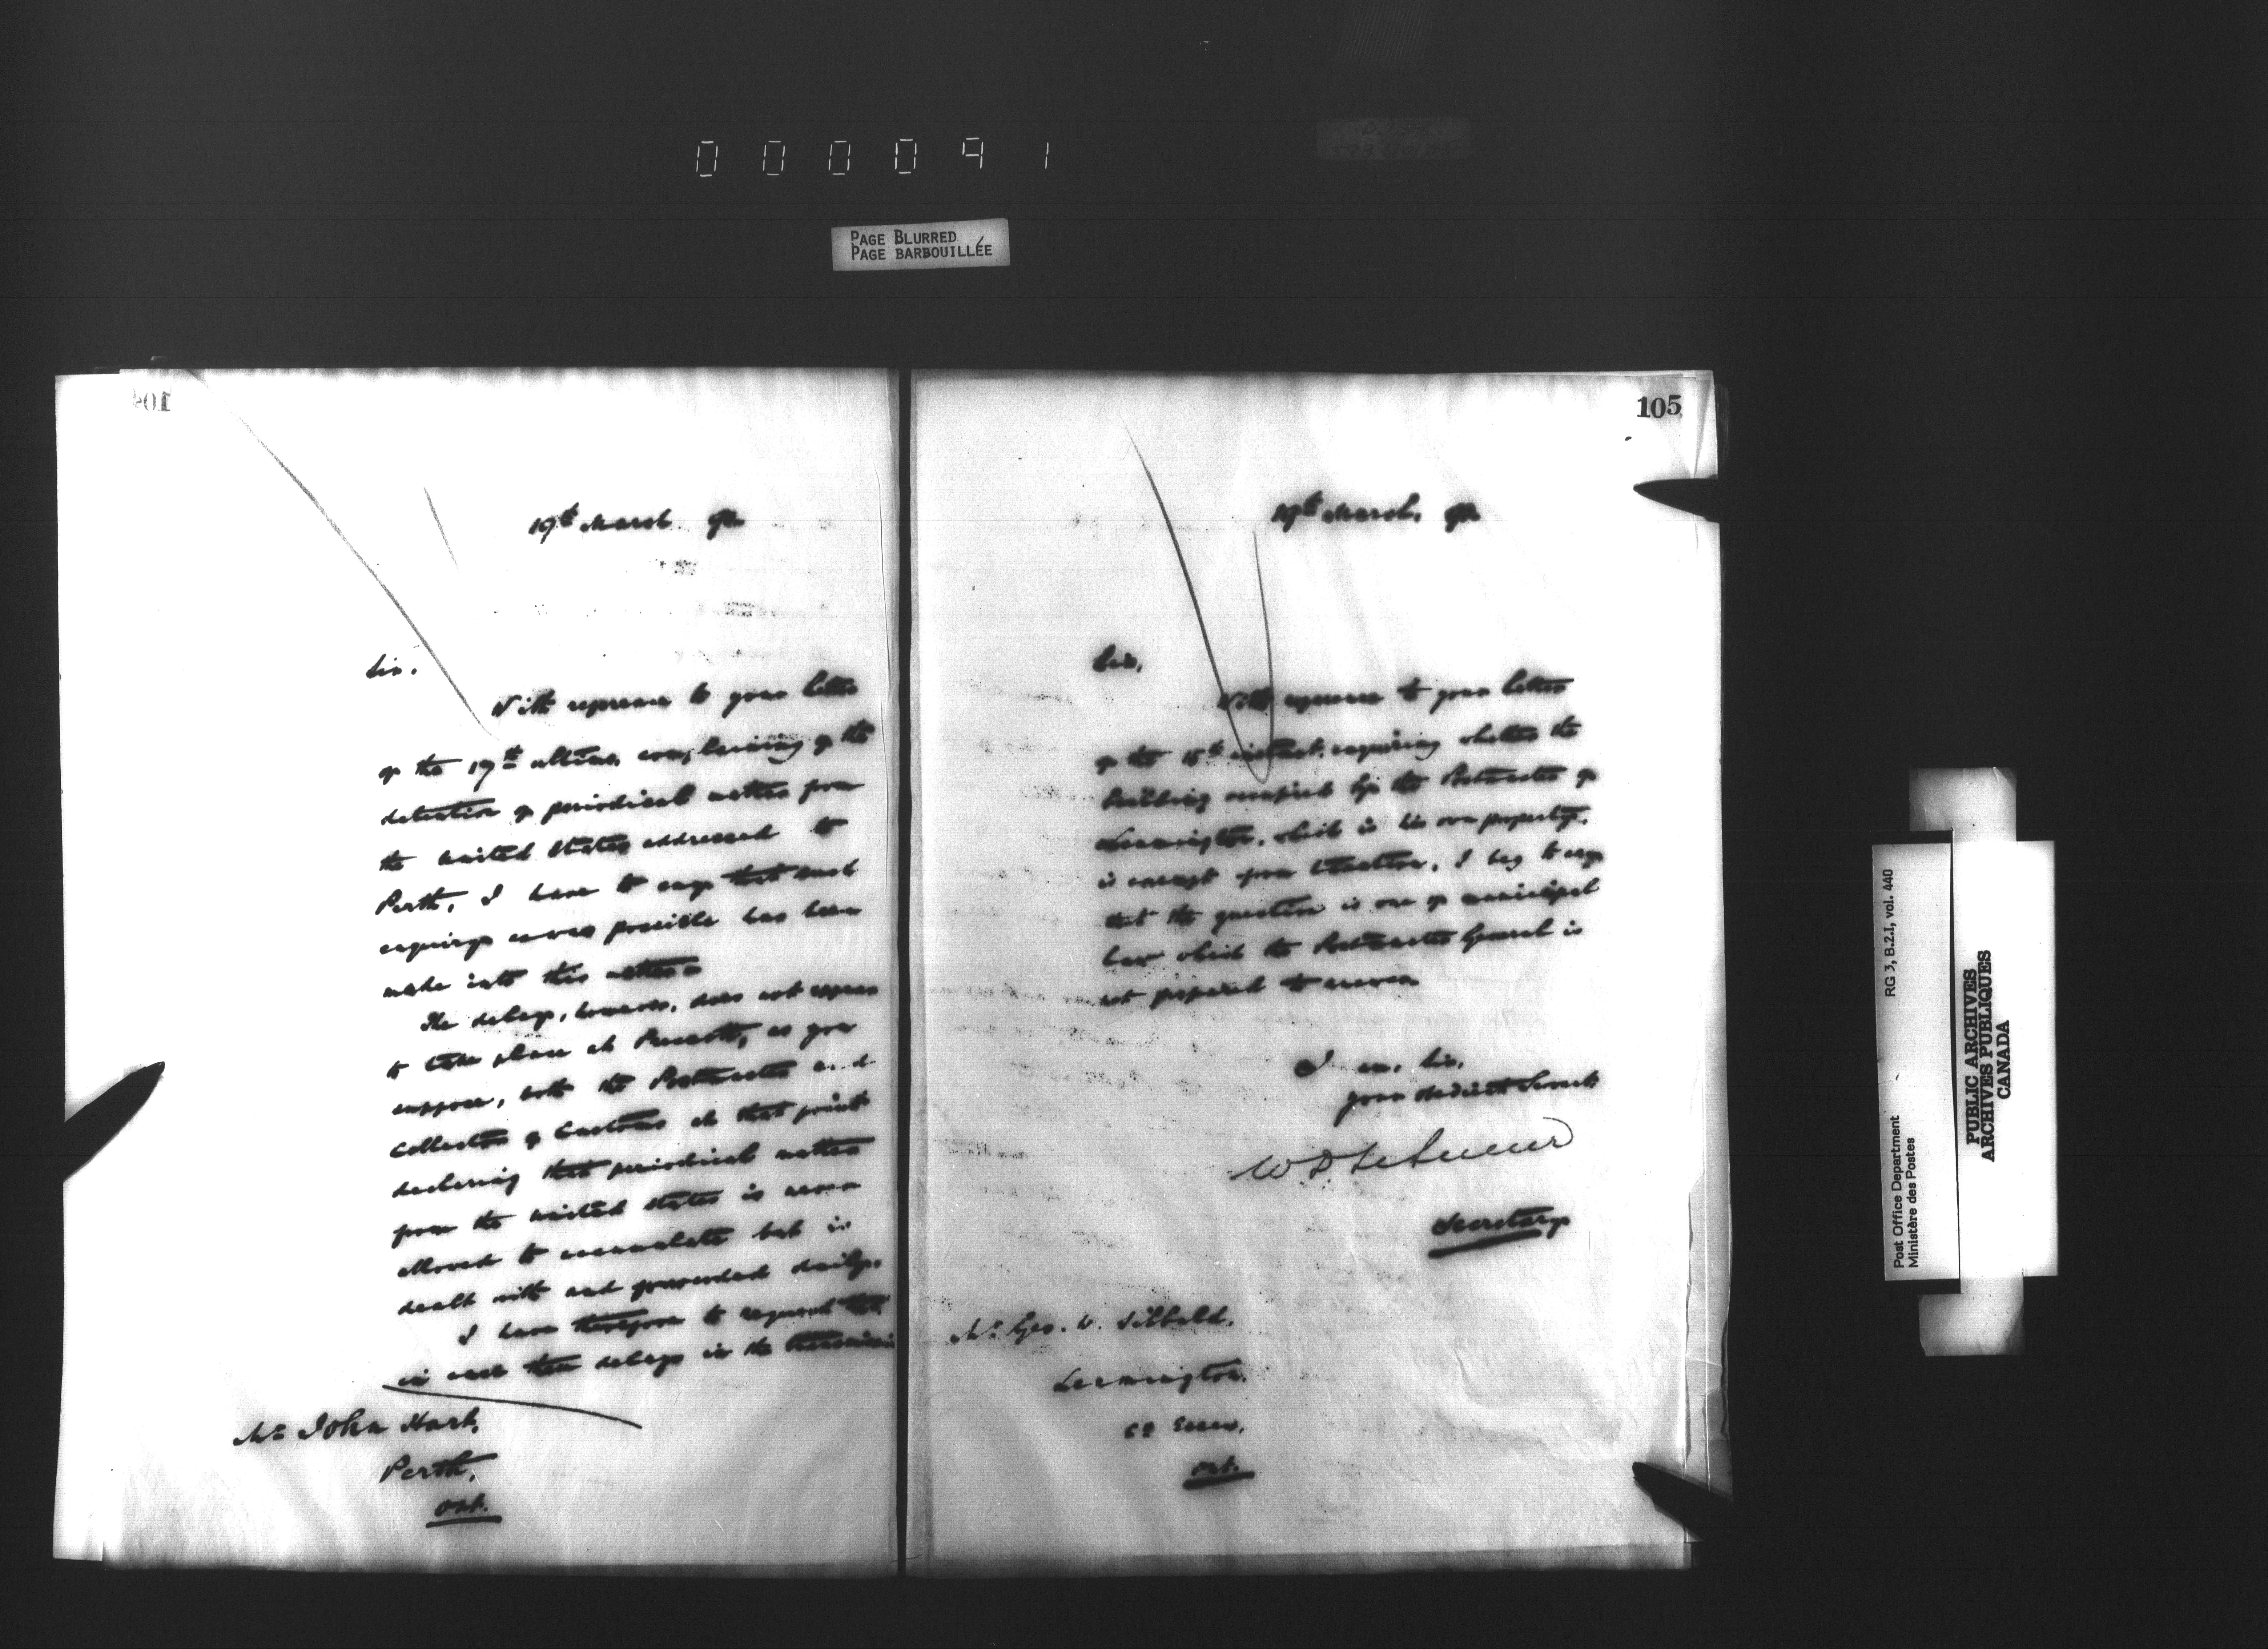 000091
PAGE BLURRED
PAGE BARBOUILLÉE
19th March 92
Sir.
With reference to your letter
of the 17th ultimo, complaining of the
detention of periodical matter from
the United States addressed to
Perth, I have to say that such
enquiry as was possible has been
made into this matter.
The delay, however, does not appear
to take place at Prescott, as you
suppose, both the Postmaster and
Collector of Customs at that point
declaring that periodical matter
from the United States is never
allowed to accumulate but is
dealt with and forwarded daily.
I have therefore to request that
in case these delays in the
Mr John Hart,
Perth,
Ont.
105
19th March, 92
Sir,
With reference to your letter
of the 15th instant, enquiring whether the
building occupied by the Postmaster of
Leamington, which is his own property,
is exempt from taxation, I beg to say
that the question is one of municipal
law which the Postmaster General is
not prepared to answer
I am, Sir,
Your obedient Servant
W D LeSueur
Secretary
Mr Geo. W. Sibbald.
Leamington.
Co Essex.
Ont.
RG 3, B.2.I, vol. 440
Post Office Department
Ministère des Postes
PUBLIC ARCHIVES
ARCHIVES PUBLIQUES
CANADA